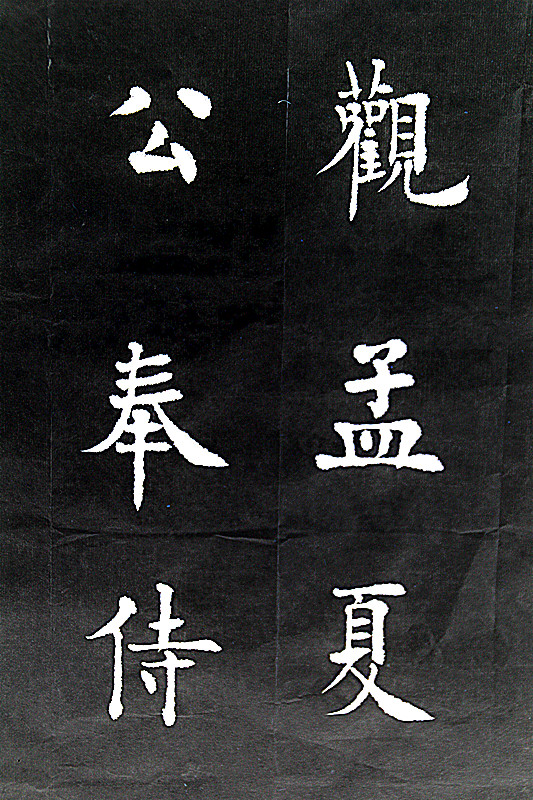 觀孟夏
公奉侍